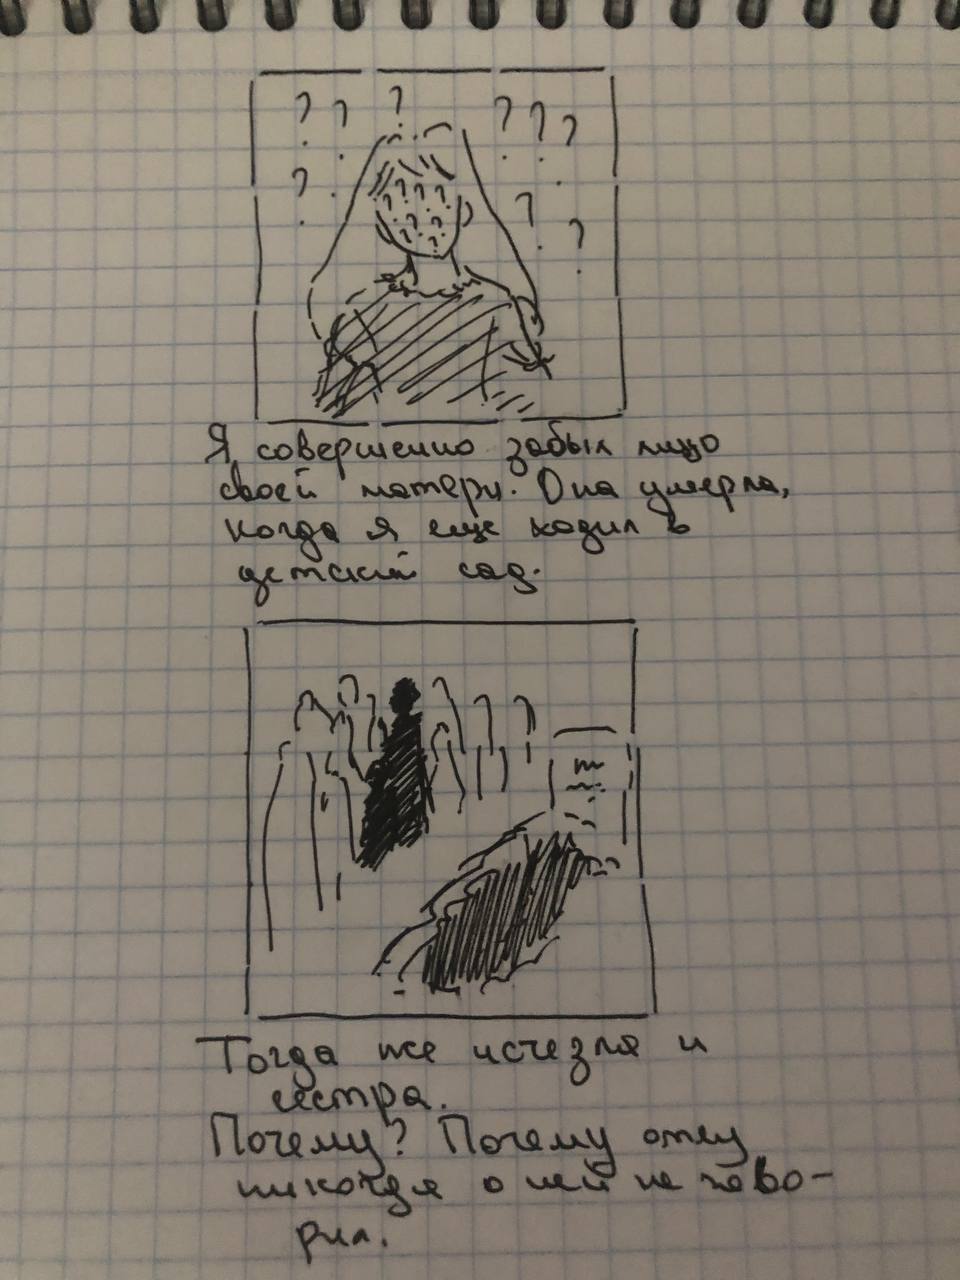 ? ? ? ? ? ?
? ? ? ?
? ? ? ? ? ? ? ? ?
Я совершенно забыл лицо
своей матери. Она умерла,
когда я еще ходил в
детский сад.
Тогда же исчезла и
сестра.
Почему? Почему отец
никогда о ней не гово-
рил.